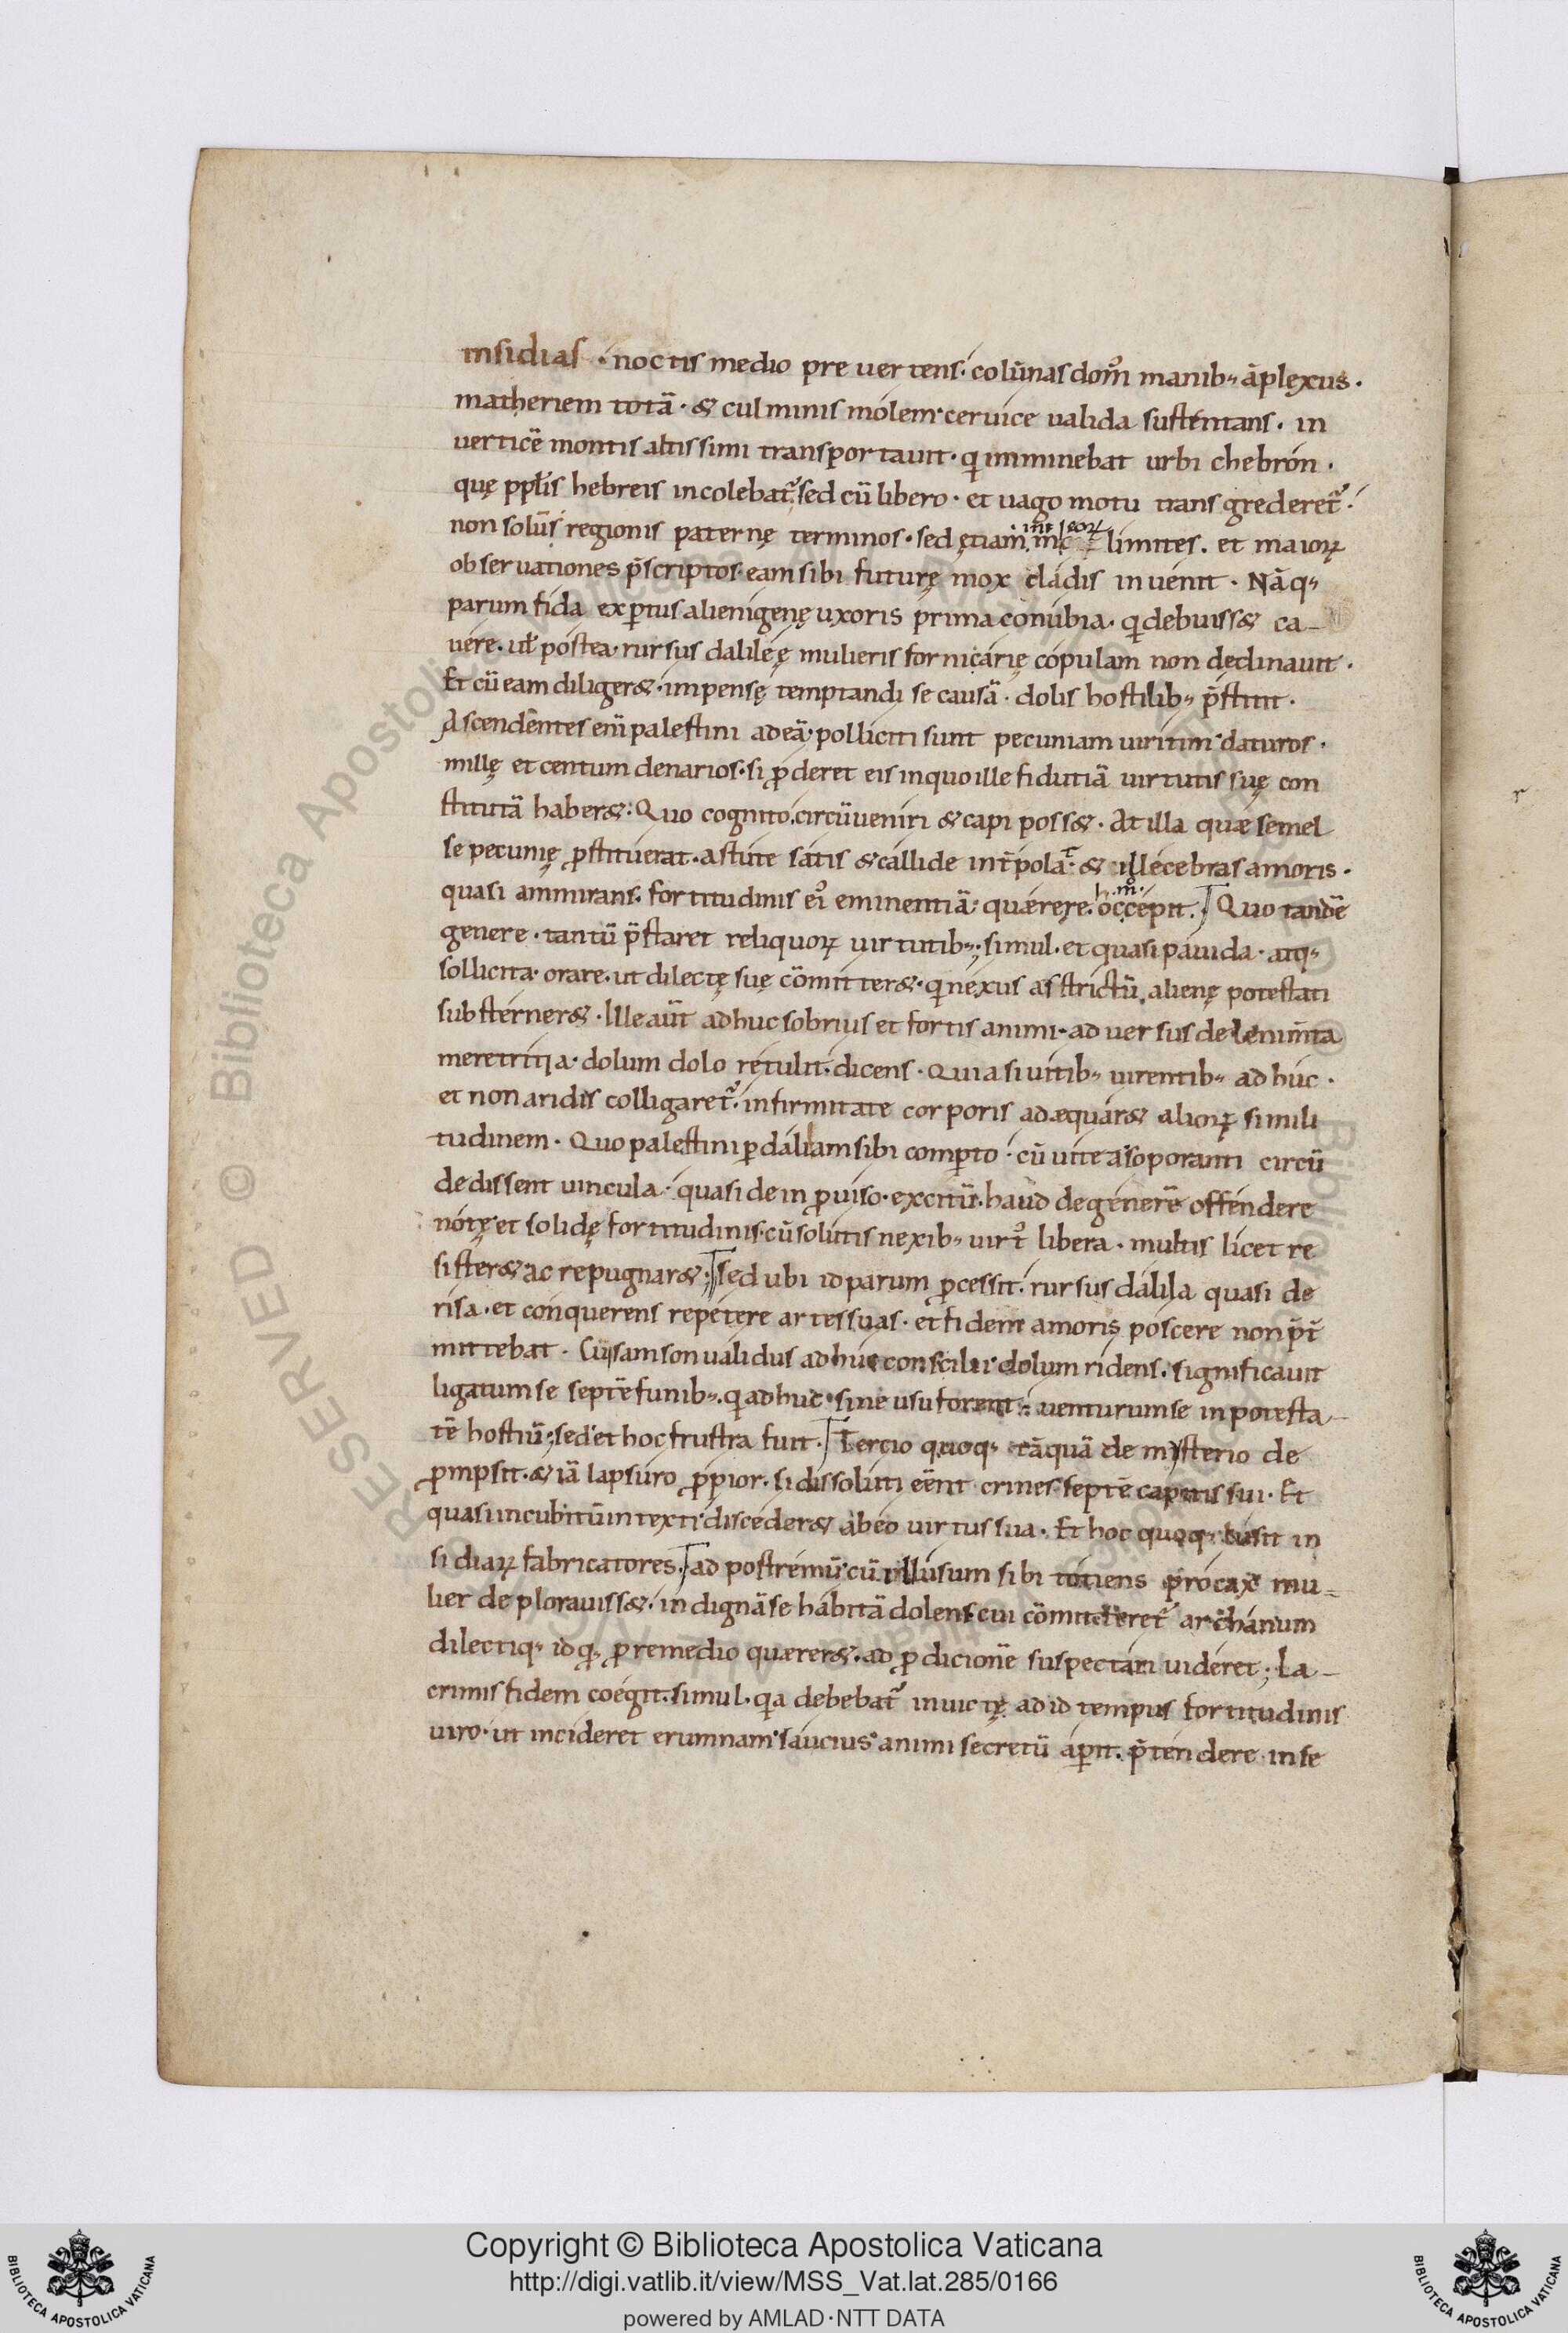 insidias · noctis medio pre uertens · colūnas domꝰ manib; āplexus ·
matheriem totā · & culminis molem · ceruice ualida sustentans · in
uerticē montis altissimi transportauit · qi imminebat urbi chebron ·
quę pplis hebreis incolebat᷑ sed cū libero · et uago motu transgrederet᷑ ·
non solū regionis paternę terminos · sed ętiam limites . et maioꝝ
obseruationes p̄scriptos · eam sibi futurę mox cladis inuenit · Nāq;
parum fida exꝑtus alienigenę uxoris prima conubia · qi debuiss& ca-
uere · ut postea · rursus dalileę mulieris fornicarię copulam non declinauit ·
Et cū eam diliger& · impensę temptandi se causā · dolis hostilib; p̄stitit ·
Ascendentes eni palestini ad eā · polliciti sunt pecuniam uiritim daturos ·
millę et centum denarios · si ꝓderet eis in quo ille fidutiā uirtutis suę con
stitutā haber& : Quo cognito · circūueniri & capi poss& · At illa quæ semel
se pecunię ꝓstituerat · astute satis & callide int̄pola · & illecebras amoris ·
quasi ammirans · fortitudinis eiꝰ eminentiā · quærere occepit · Quo tandē
genere · tantū p̄staret reliquoꝝ uirtutib; ; simul · et quasi pauida · atq;
sollicita · orare · ut dilectę suę cōmitter& · qi nexus astrictū alienę potestati
substerner& · Ille aūt adhuc sobrius et fortis animi · aduersus delenimta
meretritia · dolum dolo retulit · dicens · Quia si uitib; uirentib; adhuc ·
et non aridis colligaret᷑ · infirmitate corporis adæquar& alioꝝ simili
tudinem · Quo palestini ꝑ daliam sibi comꝑto · cū uite a soporanti circū
dedissent uincula · quasi de inꝓuiso · excitū · haud degenerē offendere
notę et solidę fortitudinis · cū solutis nexib; uirtꝰ libera · multis licet re
sister& ac repugnar& · Sed ubi id parum ꝓcessit · rursus dalila quasi de
risa · et conquerens repetere artes suas · et fidem amoris poscere non p̄t̄
mittebat · Cū samson ualidus adhuc consilii dolum ridens · significauit
ligatum se septē funib; · qi adhuc sine usu forent · uenturum se in potesta-
tē hostiū · sed et hoc frustra fuit · Tercio quoq; tāquā de mysterio de
ꝓmpsit · & iā lapsuro ꝓpior · si dissoluti eēnt crines septē capitis sui · Et
quasi in cubitū intexti disceder& ab eo uirtus sua · Et hoc quoq; lusit in
sidiaꝝ fabricatores · ad postremū cū illusum sibi totiens procax mu-
lier deplorauiss& · indignā se habitā dolens cui cōmitteret᷑ archanum
dilectiq; idq; ꝓ remedio quærer& · ad ꝓdicionē suspectari uideret ; La-
crimis fidem coegit · simul · qa debebat᷑ inuictę ad id tempus fortitudinis
uiro · ut incideret erumnam · saucius animi secretū aꝑit · p̄tendere in se
Copyright © Biblioteca Apostolica Vaticana
http://digi.vatlib.it/view/MSS_Vat.lat.285/0166
powered by AMLAD·NTT DATA
BIBLIOTECA APOSTOLICA VATICANA
BIBLIOTECA APOSTOLICA VATICANA